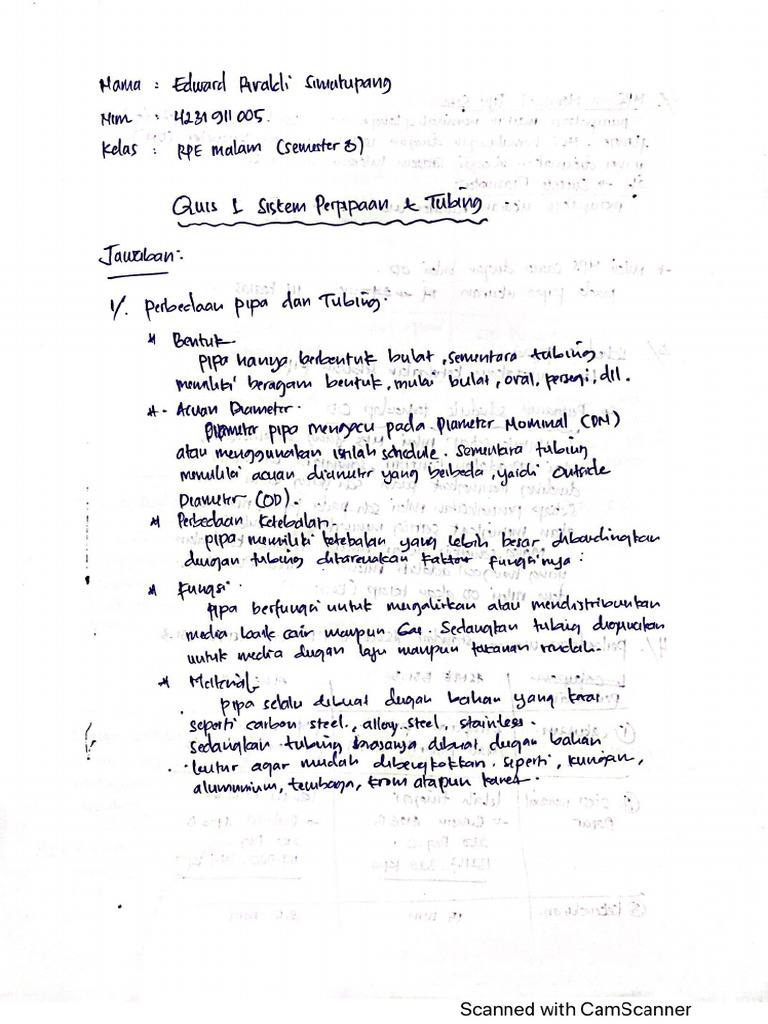 Nama : Edward Rivaldi Simatupang
Nim : 4231911005.
Kelas : RPE malam (semester 3)
Quis 1 Sistem Perpipaan & Tubing
Jawaban:
1/. Perbedaan pipa dan Tubing.
* Bentuk
pipa hanya berbentuk bulat, sementara tubing
memiliki beragam bentuk, mulai bulat, oval, persegi, dll.
* Acuan Diameter.
Diameter pipa mengacu pada Diameter Nominal (DN)
atau menggunakan istilah schedule. Sementara tubing
memiliki acuan diameter yang berbeda, yaidi Outside
Diameter (OD).
* Perbedaan Ketebalan.
pipa memiliki ketebalan yang lebih besar dibandingkan
dengan tubing dikarenakan Faktor fungsinya :
* Fungsi.
Pipa berfungsi untuk mengalirkan atau mendistribusikan
media baik cair maupun Gas. Sedangkan tubing digunakan
untuk media dengan laju maupun tekanan rendah.
* Material.
pipa selalu dibuat dengan bahan yang keras
seperti carbon steel, alloy steel, stainless.
sedangkan tubing biasanya dibuat dengan bahan
lentur agar mudah dibengkokkan. seperti, kuningan,
alumunium, tembaga, krom ataupun karet.
Scanned with CamScanner